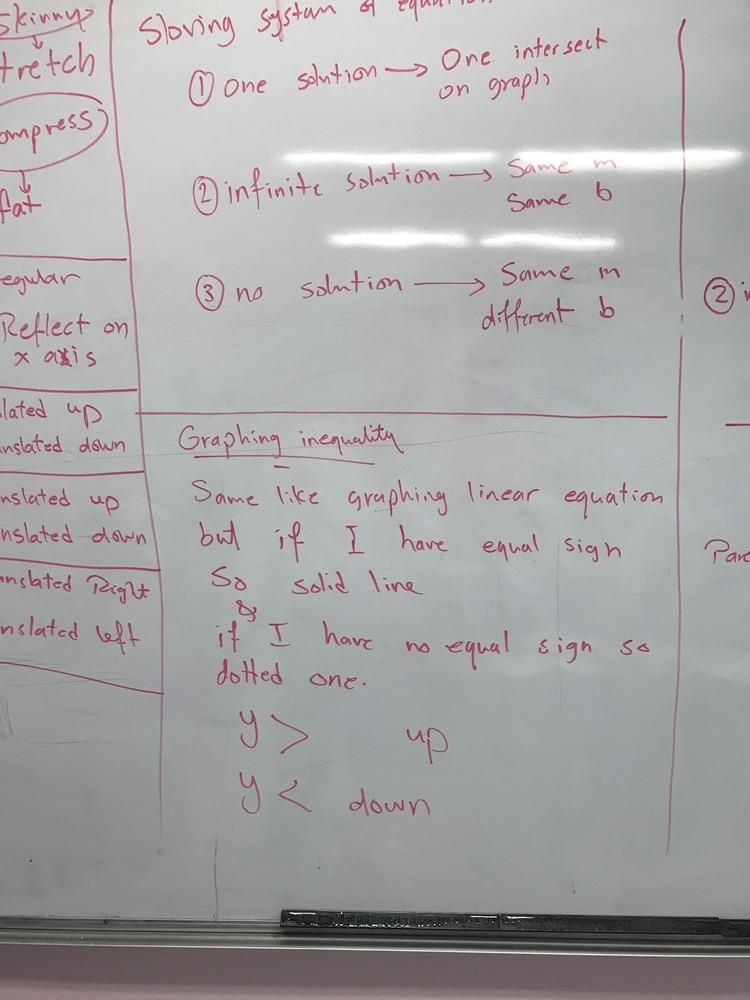 skinny
tretch
ompress
flat
egular
Reflect on
x axis
lated up
nslated down
nslated up
nslated down
anslated Right
nslated left
Sloving system of equation
① One solution → One intersect
on graph
② infinite solution → Same m
Same b
③ no solution → Same m
different b
Graphing inequality
Same like graphing linear equation
but if I have equal sign
So solid line
&
if I have no equal sign so
dotted one.
y > up
y < down
②
Par